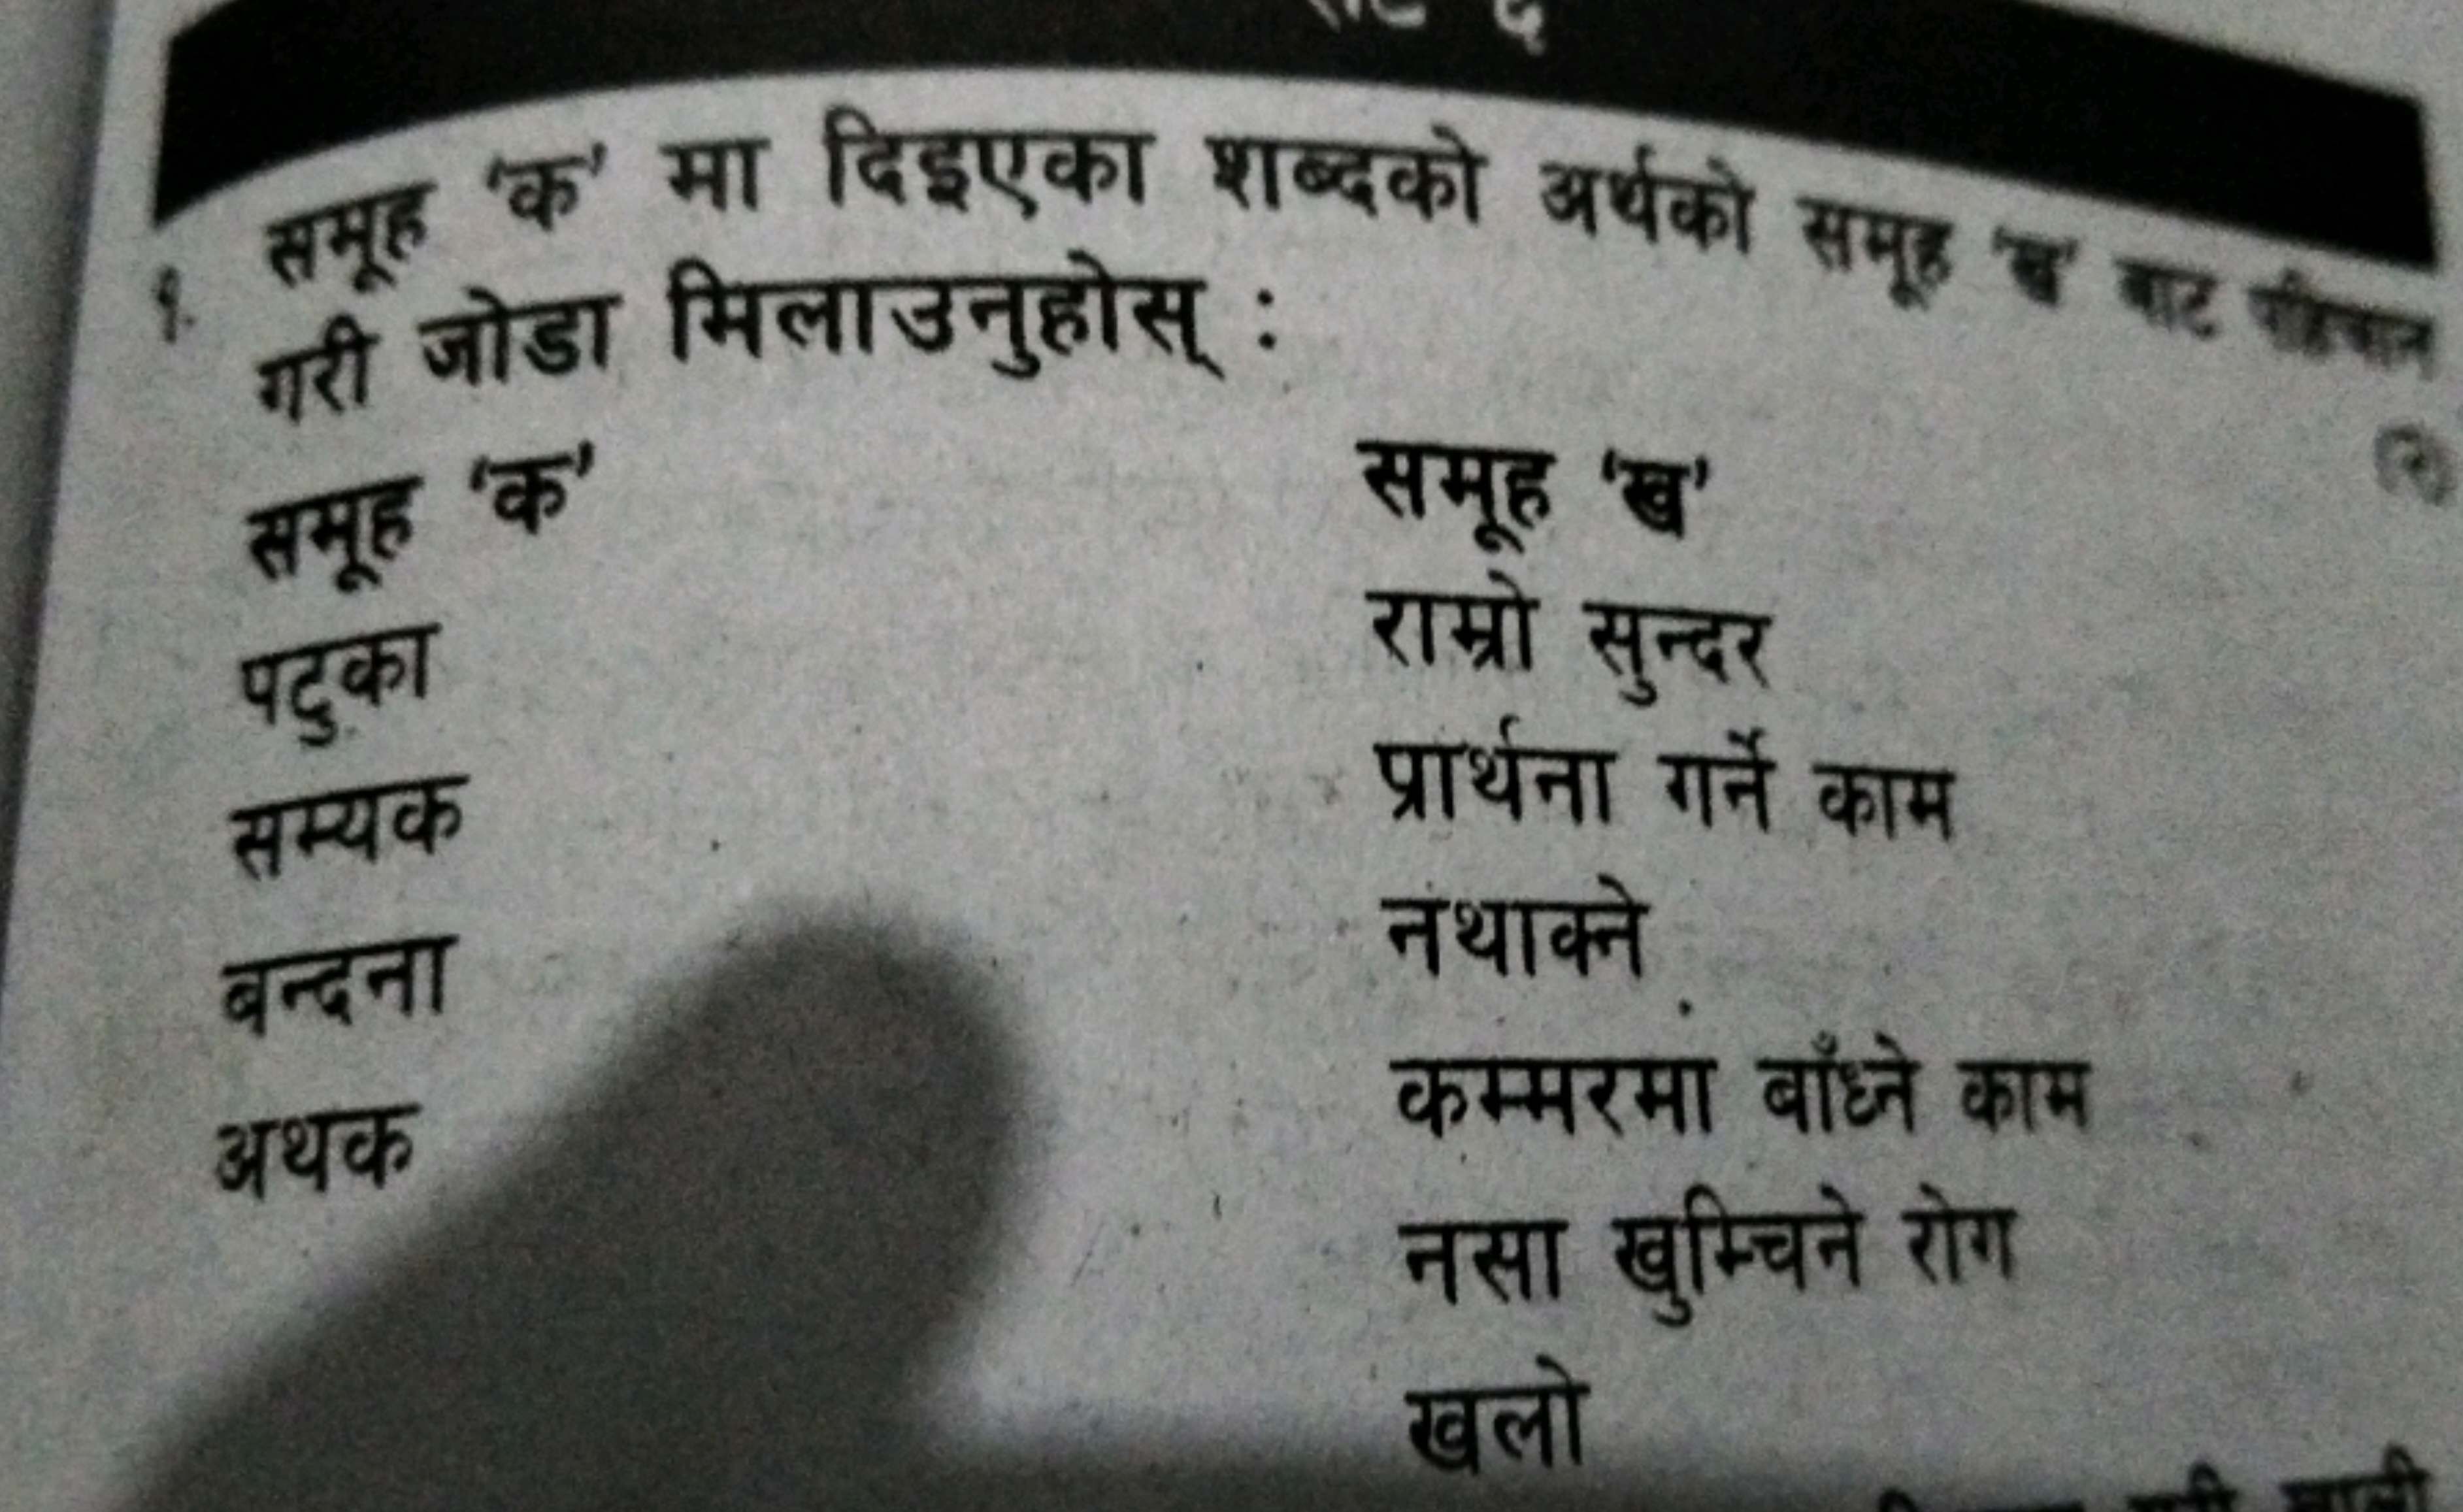 १. समूह 'क' मा दिइएका शब्दको अर्थको समूह 'ख' बाट पहिचान
गरी जोडा मिलाउनुहोस् :
समूह 'क' समूह 'ख'
पटुका राम्रो सुन्दर
सम्यक प्रार्थना गर्ने काम
बन्दना नथाक्ने
अथक कम्मरमा बाँध्ने काम
नसा खुम्चिने रोग
खलो